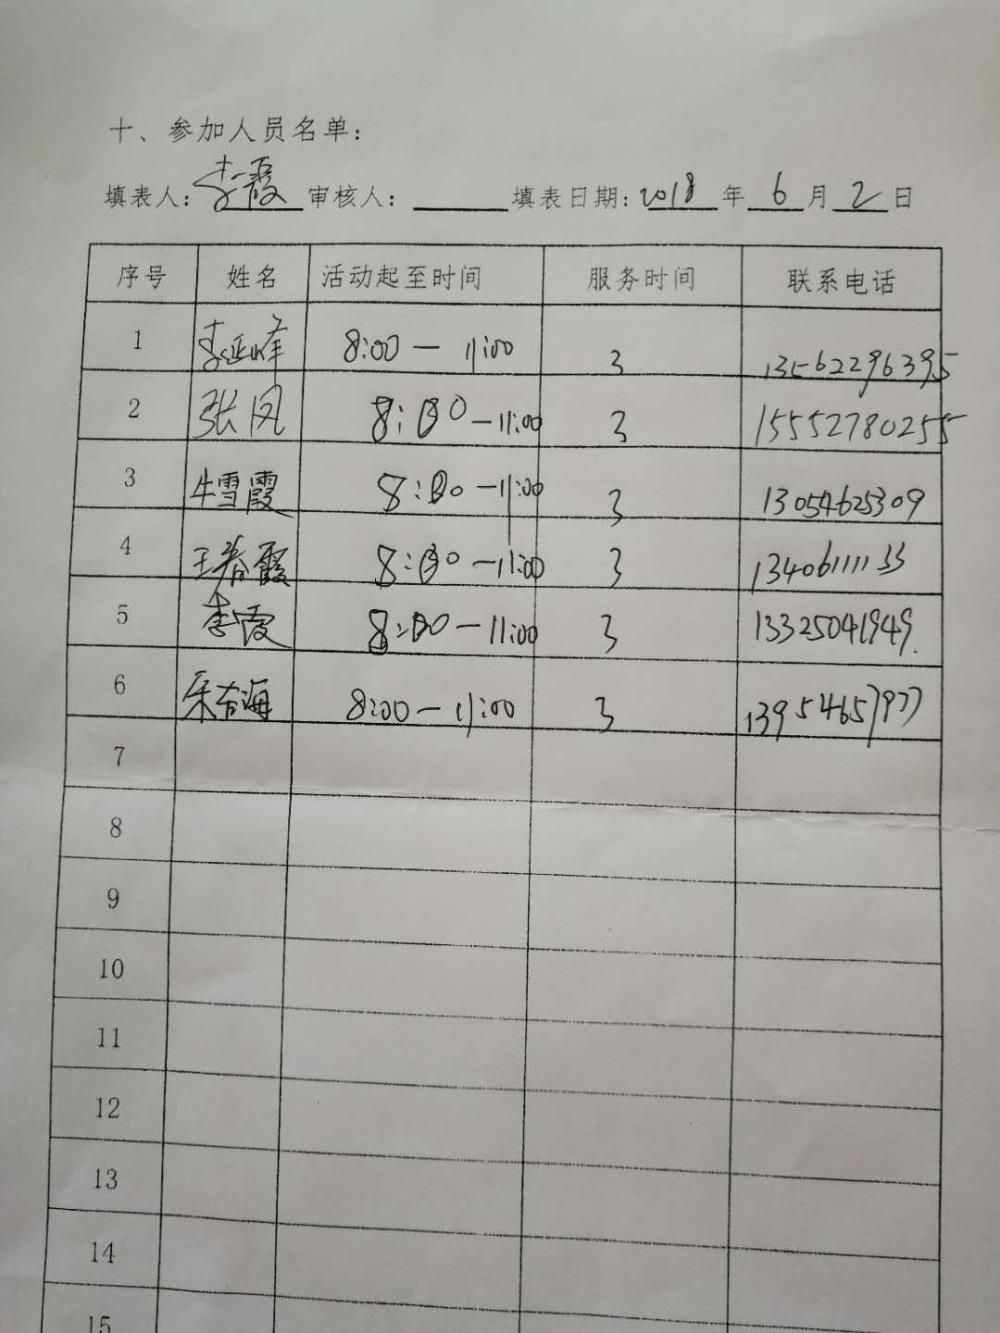 十、参加人员名单：
填表人：李霞 审核人： 填表日期：2018年6月2日
序号 姓名 活动起至时间 服务时间 联系电话
1 李延峰 8:00—11:00 3 13562296395
2 张凤 8:00—11:00 3 15552780255
3 牛雪霞 8:00—11:00 3 13054625309
4 王春霞 8:00—11:00 3 13406111133
5 李霞 8:00—11:00 3 13325041949.
6 8:00—11:00 3 13954657977
7
8
9
10
11
12
13
14
15